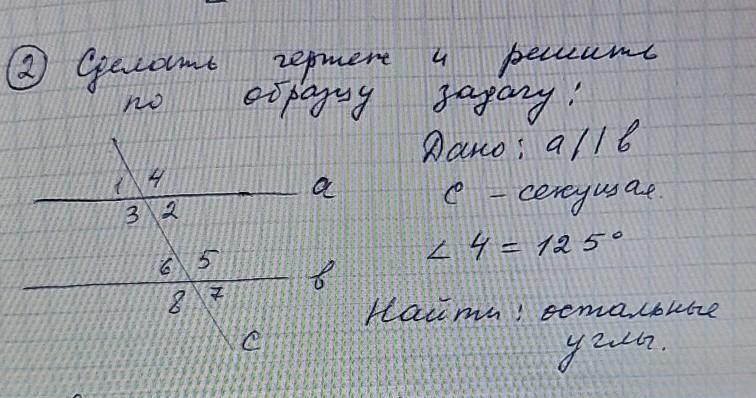 2 Сделать чертеж и решить
по образцу задачу:
Дано: a || b
c - секущая.
∠ 4 = 125°
Найти: остальные
углы.
1 4
a
3 2
6 5
b
8 7
c